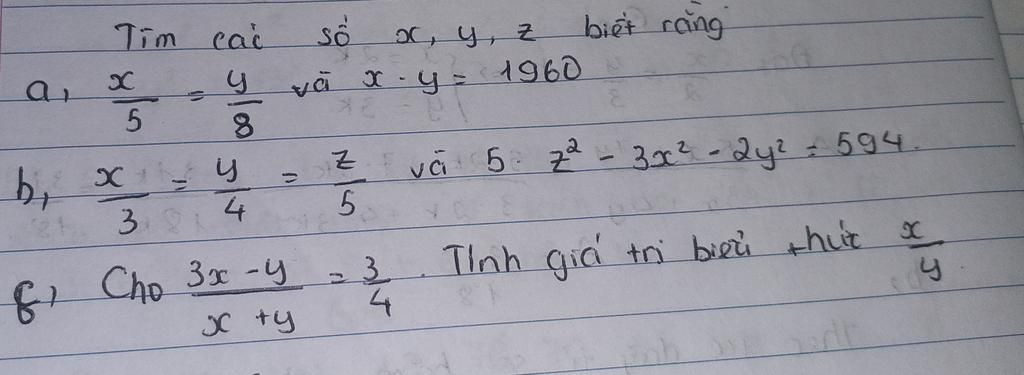 Tìm các số x, y, z biết rằng
a, x/5 = y/8 và x . y = 1960
b, x/3 = y/4 = z/5 và 5 . z² - 3x² - 2y² = 594.
c, Cho (3x - y)/(x + y) = 3/4. Tính giá trị biểu thức x/y